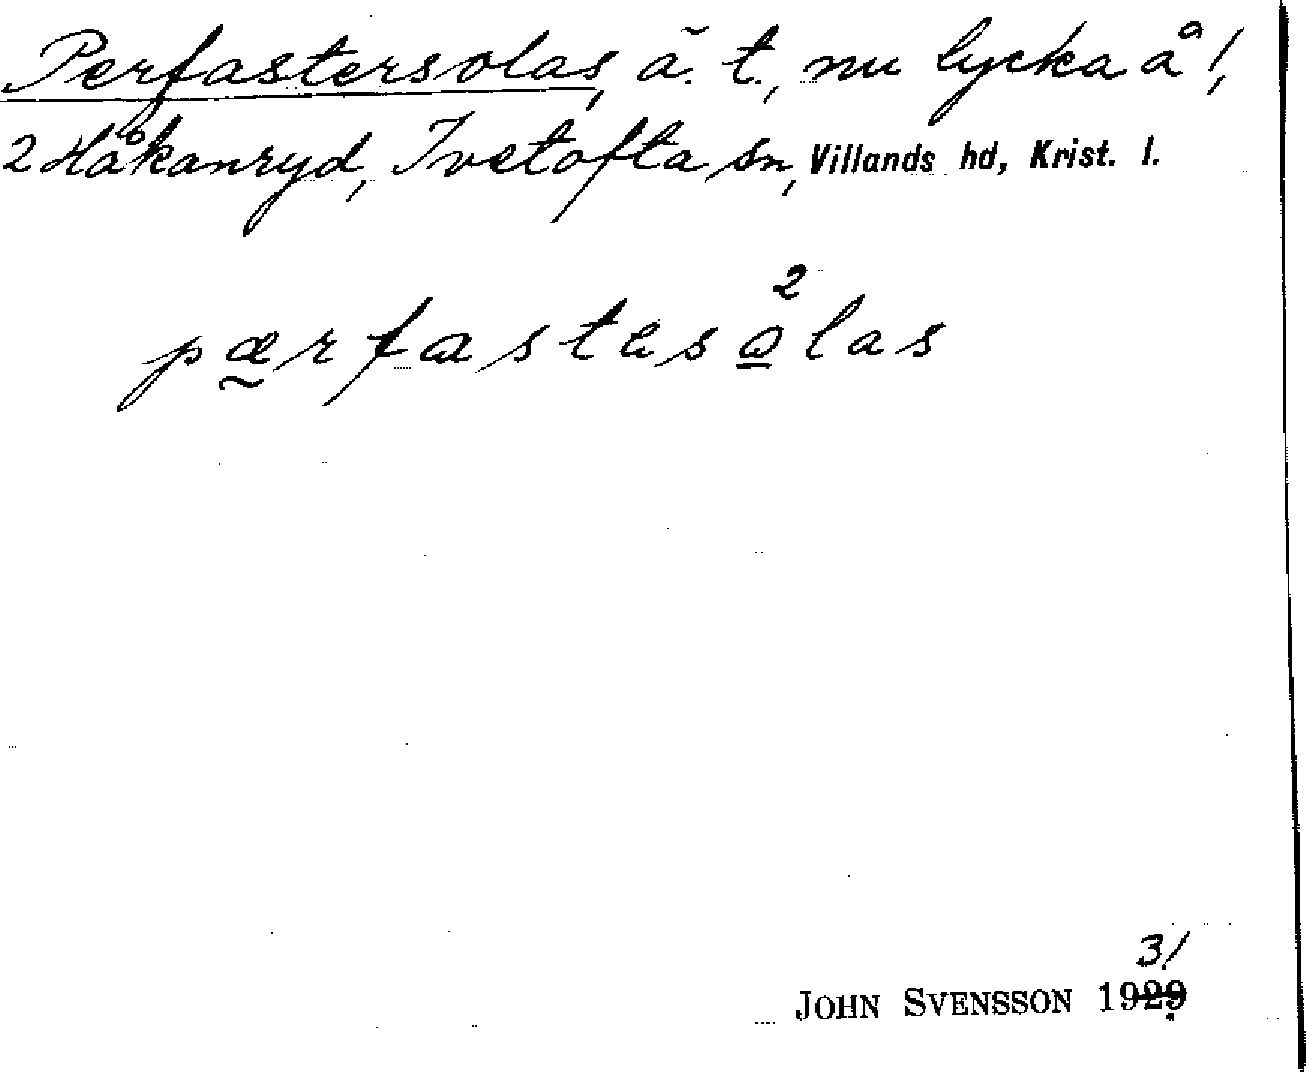 Perfastersolas, ä. t., nu lycka å 1,
2 Håkanryd, Ivetofta sn, Villands hd, Krist. l.
2
pærfastesolas
31
JOHN SVENSSON 1929